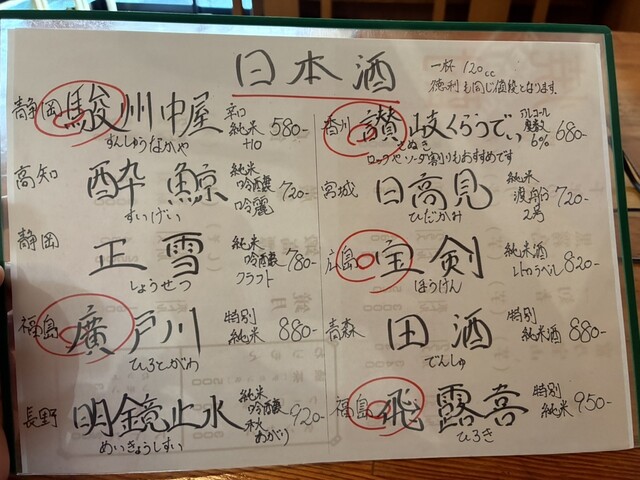 日本酒
一杯 120cc
徳利も同じ価格となります。
静岡 駿州中屋 辛口 純米 +10 580-
すんしゅうなかや
高知 酔鯨 純米 吟醸 吟麗 720-
すいげい
静岡 正雪 純米 吟醸 クラフト 780-
しょうせつ
福島 廣戸川 特別 純米 880-
ひろとがわ
長野 明鏡止水 純米 吟醸 秋あがり 920-
めいきょうしすい
香川 讃岐くらうでぃ アルコール 度数 6% 680-
さぬき
ロックやソーダ割りもおすすめです
宮城 日高見 純米 2号 720-
ひだかみ
広島 宝剣 純米酒 レトロラベル 820-
ほうけん
青森 田酒 特別 純米酒 880-
でんしゅ
福島 飛露喜 特別 純米 950-
ひろき